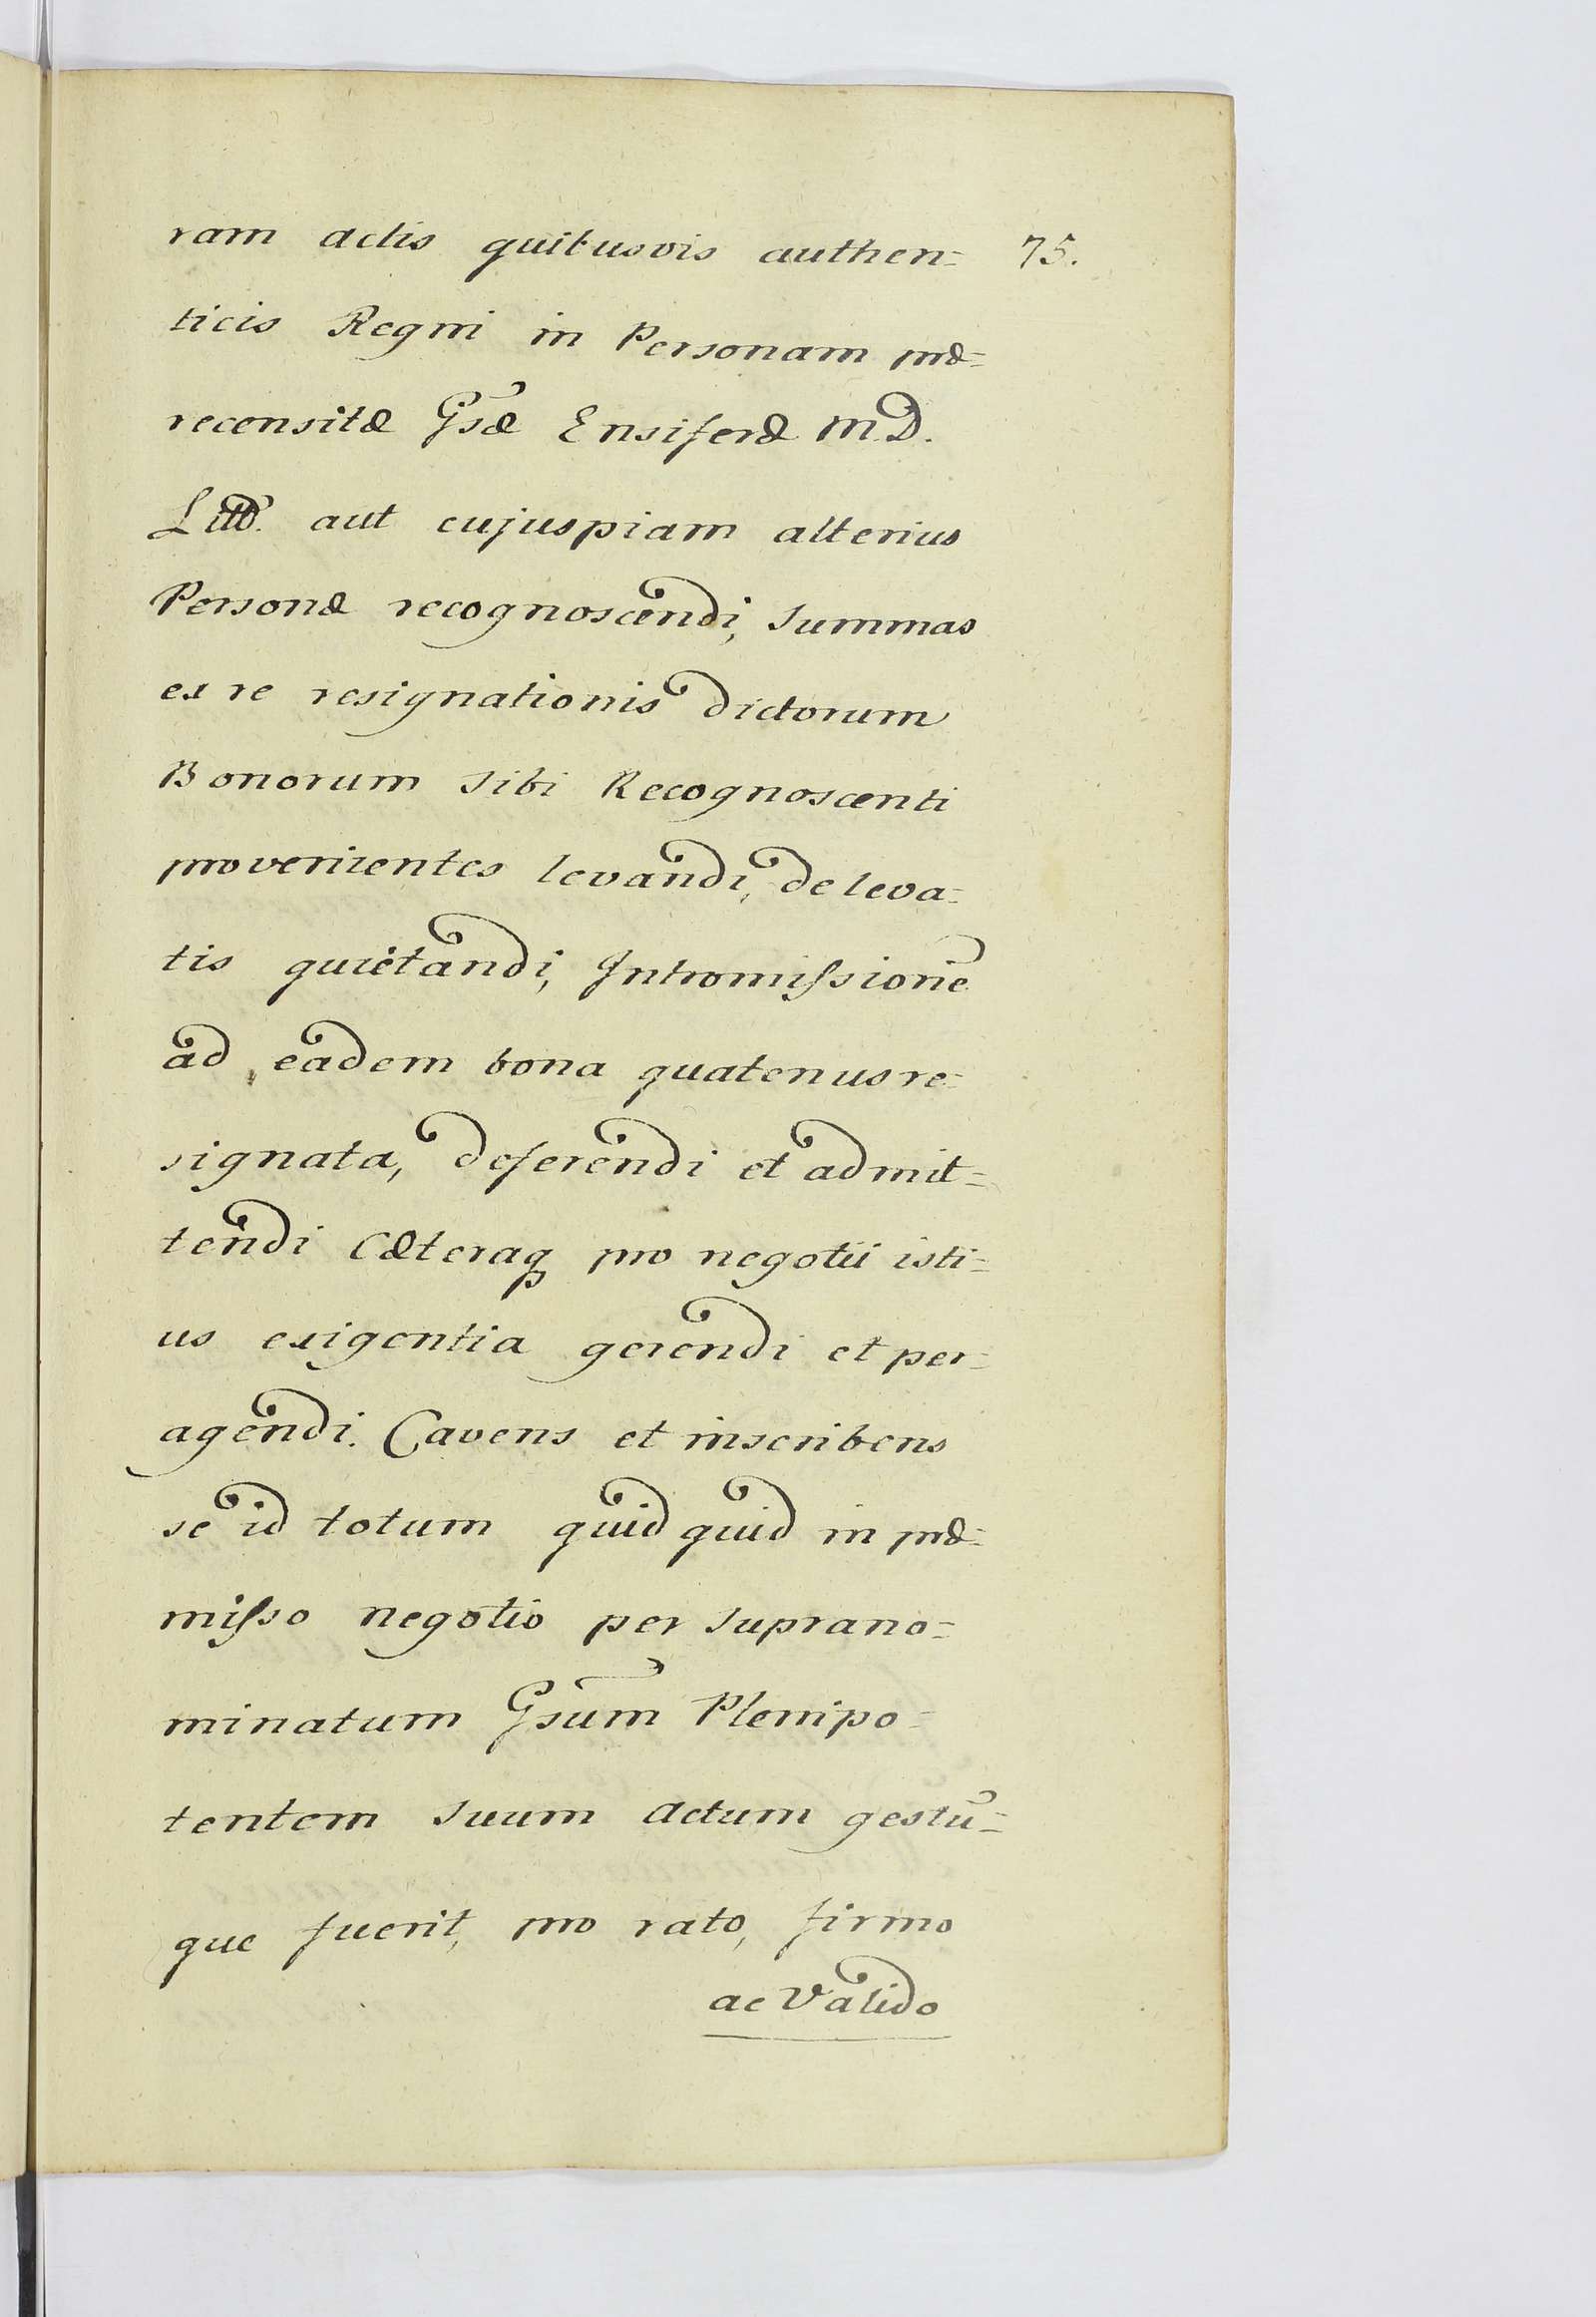 ram actis quibusvis authen= 75.
ticis Regni in Personam præ=
recensitæ Gsæ Ensiferæ M.D.
Litt. aut cujuspiam alterius
Personæ recognoscendi, summas
ex re resignationis dictorum
Bonorum sibi Recognoscenti
provenientes levandi, de leva=
tis quietandi, Intromissionē
ad eadem bona quatenus re=
signata, deferendi et admit=
tendi Cæteraq₃ pro negotii isti=
us exigentia gerendi et per=
agendi. Cavens et inscribens
se id totum quid quid in præ=
misso negotio per suprano=
minatum Gsum Plenipo=
tentem suum actum gestū=
que fuerit, pro rato, firmo
ac valido